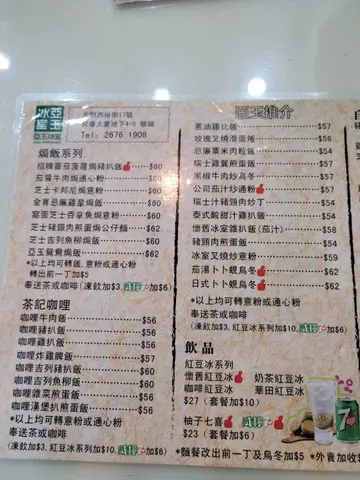 亞玉冰室
亞玉冰室
Tel: 2676 1908
焗飯系列
招牌蕃茄菠蘿焗豬扒飯 $60
茄醬牛肉焗通心粉 $60
芝士卡邦尼焗意粉 $60
全賓忌廉雞皇焗飯 $60
窩蛋芝士西拿魚焗意粉 $60
芝士豬頸肉煎蛋焗公仔麵 $62
芝士吉列魚柳焗飯 $60
亞玉鴛鴦焗飯 $62
*以上均可轉飯, 意粉或通心粉
轉出前一丁加$5
奉送茶或咖啡 (凍飲加$3,
茶記咖哩
咖哩牛肉飯 $56
咖哩豬扒飯 $56
咖哩雞扒飯 $56
咖哩炸雞髀飯 $57
咖哩吉列豬扒飯 $60
咖哩吉列魚柳飯 $60
咖哩雜菜煎蛋飯 $56
咖哩漢堡扒煎蛋飯 $56
*以上均可轉意粉或通心粉
奉送茶或咖啡
(凍飲加$3, 紅豆冰系列加$10, 加$6)
亞玉推介
蔥油雞比飯 $57
玫瑰叉燒滑蛋飯 $56
忌廉粟米肉粒飯 $54
瑞士雞翼煎蛋飯 $54
黑椒牛肉炒烏冬 $61
公司茄汁炒通粉 $61
瑞士汁豬頸肉炒丁 $58
泰式酸甜汁雞扒飯 $54
懷舊冰室雜扒飯(茄汁) $58
豬頸肉煎蛋飯 $58
冰室叉燒炒意粉 $59
茄湯卜卜蜆烏冬 $62
日式卜卜蜆烏冬 $62
*以上均可轉意粉或通心粉
奉送茶或咖啡
(凍飲加$3, 紅豆冰系列加$10, 加$6)
飲品
紅豆冰系列
懷舊紅豆冰 奶茶紅豆冰
咖啡紅豆冰 華田紅豆冰
$27 (套餐加$10)
柚子七喜
$23 (套餐加$6)
*麵餐改出前一丁及烏冬加$5 *外賣加收$
7